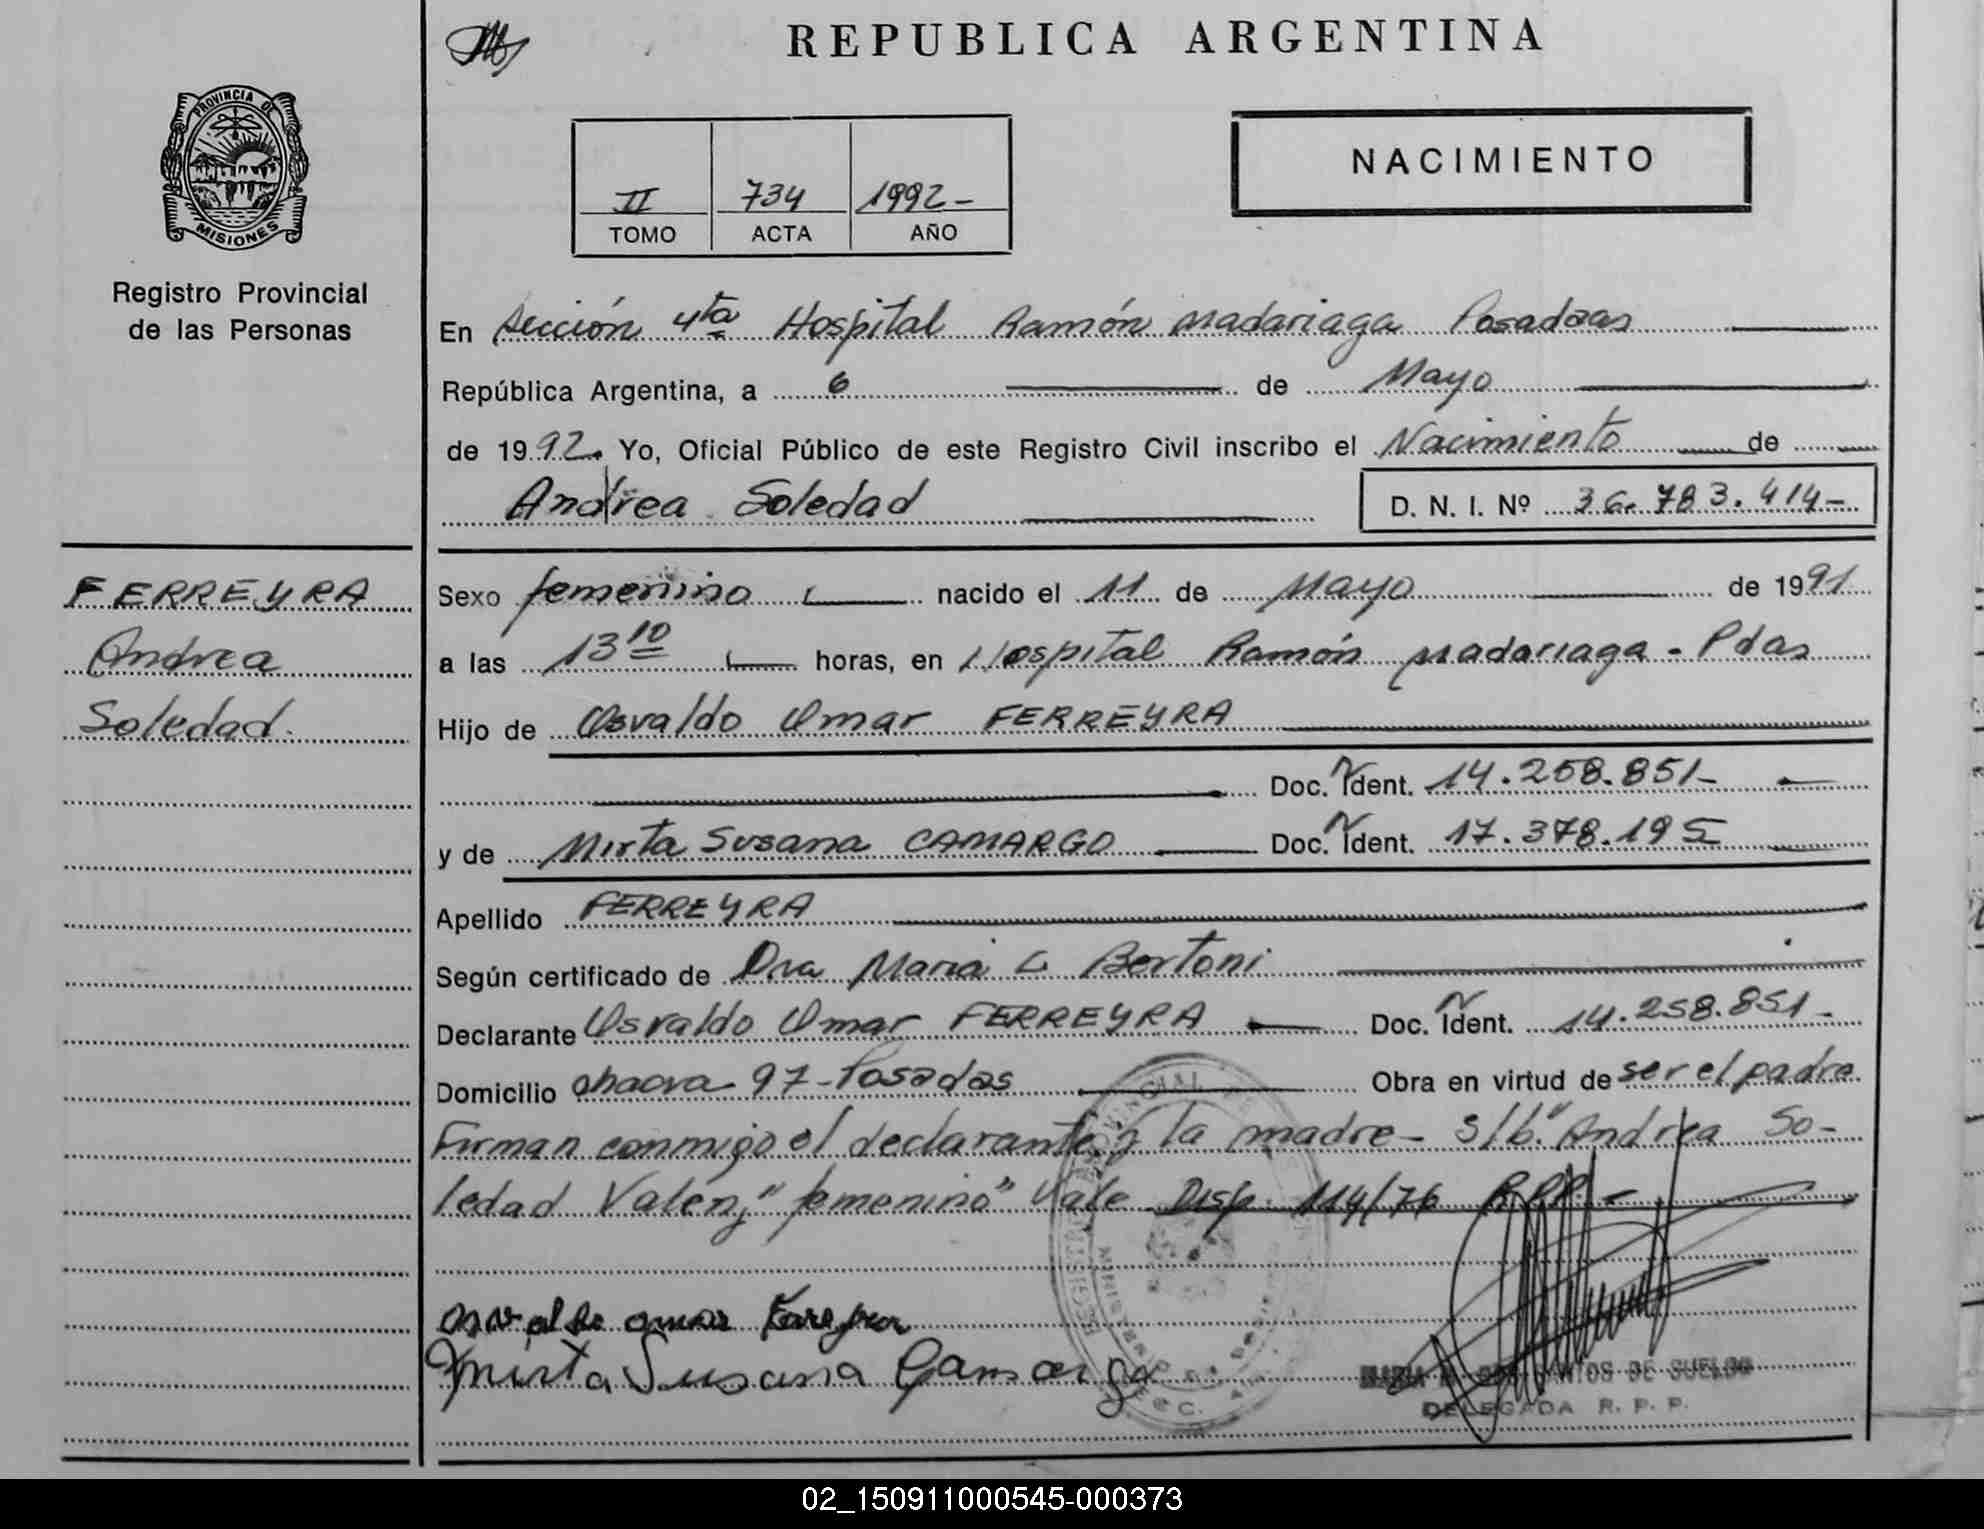 REPUBLICA ARGENTINA
PROVINCIA DE
MISIONES
Registro Provincial
de las Personas
NACIMIENTO
II 734 1992-
TOMO ACTA AÑO
En Sección 4ta Hospital Ramón Madariaga Posadas
República Argentina, a 6 de Mayo
de 1992. Yo, Oficial Público de este Registro Civil inscribo el Nacimiento de
Andrea Soledad D. N. I. Nº 36.783.414-
FERREYRA
Andrea
Soledad.
Sexo femenino nacido el 11 de Mayo de 1991
a las 13 10 horas, en Hospital Ramón Madariaga - Pdas
Hijo de Osvaldo Omar FERREYRA
Doc. Ident. 14.258.851-
y de Mirta Susana CAMARGO Doc. Ident. 17.378.195
Apellido FERREYRA
Según certificado de Dra Maria C Bertoni
Declarante Osvaldo Omar FERREYRA Doc. Ident. 14.258.851-
Domicilio chacra 97-Posadas Obra en virtud de ser el padre
Firman conmigo el declarante y la madre- S/b." Andrea So-
ledad Valen," femenino" Vale Disp. 114/76 R.P.P.-
Osvaldo omar Ferreyra
Mirta Susana Camargo
SANTOS DE SUELDO
DELEGADA R. P. P.
02_150911000545-000373